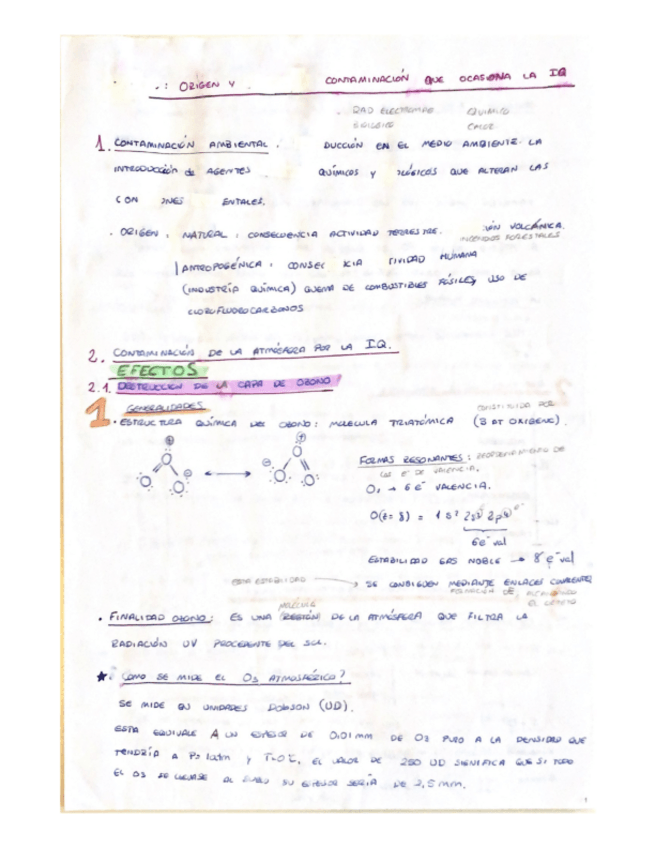 : ORIGEN Y CONTAMINACIÓN QUE OCASIONA LA IQ
RAD ELECTROMAG. QUIMICO
CALOR
1. CONTAMINACIÓN AMBIENTAL. DUCCIÓN EN EL MEDIO AMBIENTE LA
INTRODUCCIÓN de AGENTES QUÍMICOS Y OLÓGICOS QUE ALTERAN LAS
CON ONES ENTALES.
· ORIGEN: NATURAL: CONSECUENCIA ACTIVIDAD TERRESTRE. IÓN VOLCÁNICA.
INCENDIOS FORESTALES
ANTROPOGÉNICA: CONSEC CIA TIVIDAD HUMANA
(INDUSTRIA QUÍMICA) QUEMA DE COMBUSTIBLES FÓSILES, USO DE
CLOROFLUOROCARBONOS
2. CONTAMINACIÓN DE LA ATMÓSFERA POR LA IQ.
EFECTOS
2.1. DESTRUCCIÓN DE LA CAPA DE OZONO
1 GENERALIDADES
CONSTITUIDA POR
· ESTRUCTURA QUÍMICA DEL OZONO: MOLÉCULA TRIATÓMICA (3 AT OXÍGENO).
FORMAS RESONANTES: DE
LOS e- DE VALENCIA.
O3 → 6 e- VALENCIA.
O(z=8) = 1s² 2s² 2p⁴
6e- val
ESTABILIDAD GAS NOBLE → 8 e- val
ESTA ESTABILIDAD → SE CONSIGUEN MEDIANTE ENLACES COVALENTES
FORMACIÓN DE
EL OCTETO
MOLÉCULA
· FINALIDAD OZONO: ES UNA REGIÓN DE LA ATMÓSFERA QUE FILTRA LA
RADIACIÓN UV PROCEDENTE DEL SOL.
★ ¿CÓMO SE MIDE EL O3 ATMOSFÉRICO?
SE MIDE EN UNIDADES DOBSON (UD).
ESTA EQUIVALE A UN ESPESOR DE 0,01 mm DE O3 PURO A LA DENSIDAD QUE
TENDRÍA A P=1atm Y T=0°C, EL VALOR DE 250 UD SIGNIFICA QUE SI TODO
EL O3 SE LLEVASE AL SUELO SU ESPESOR SERÍA DE 2,5 mm.
1